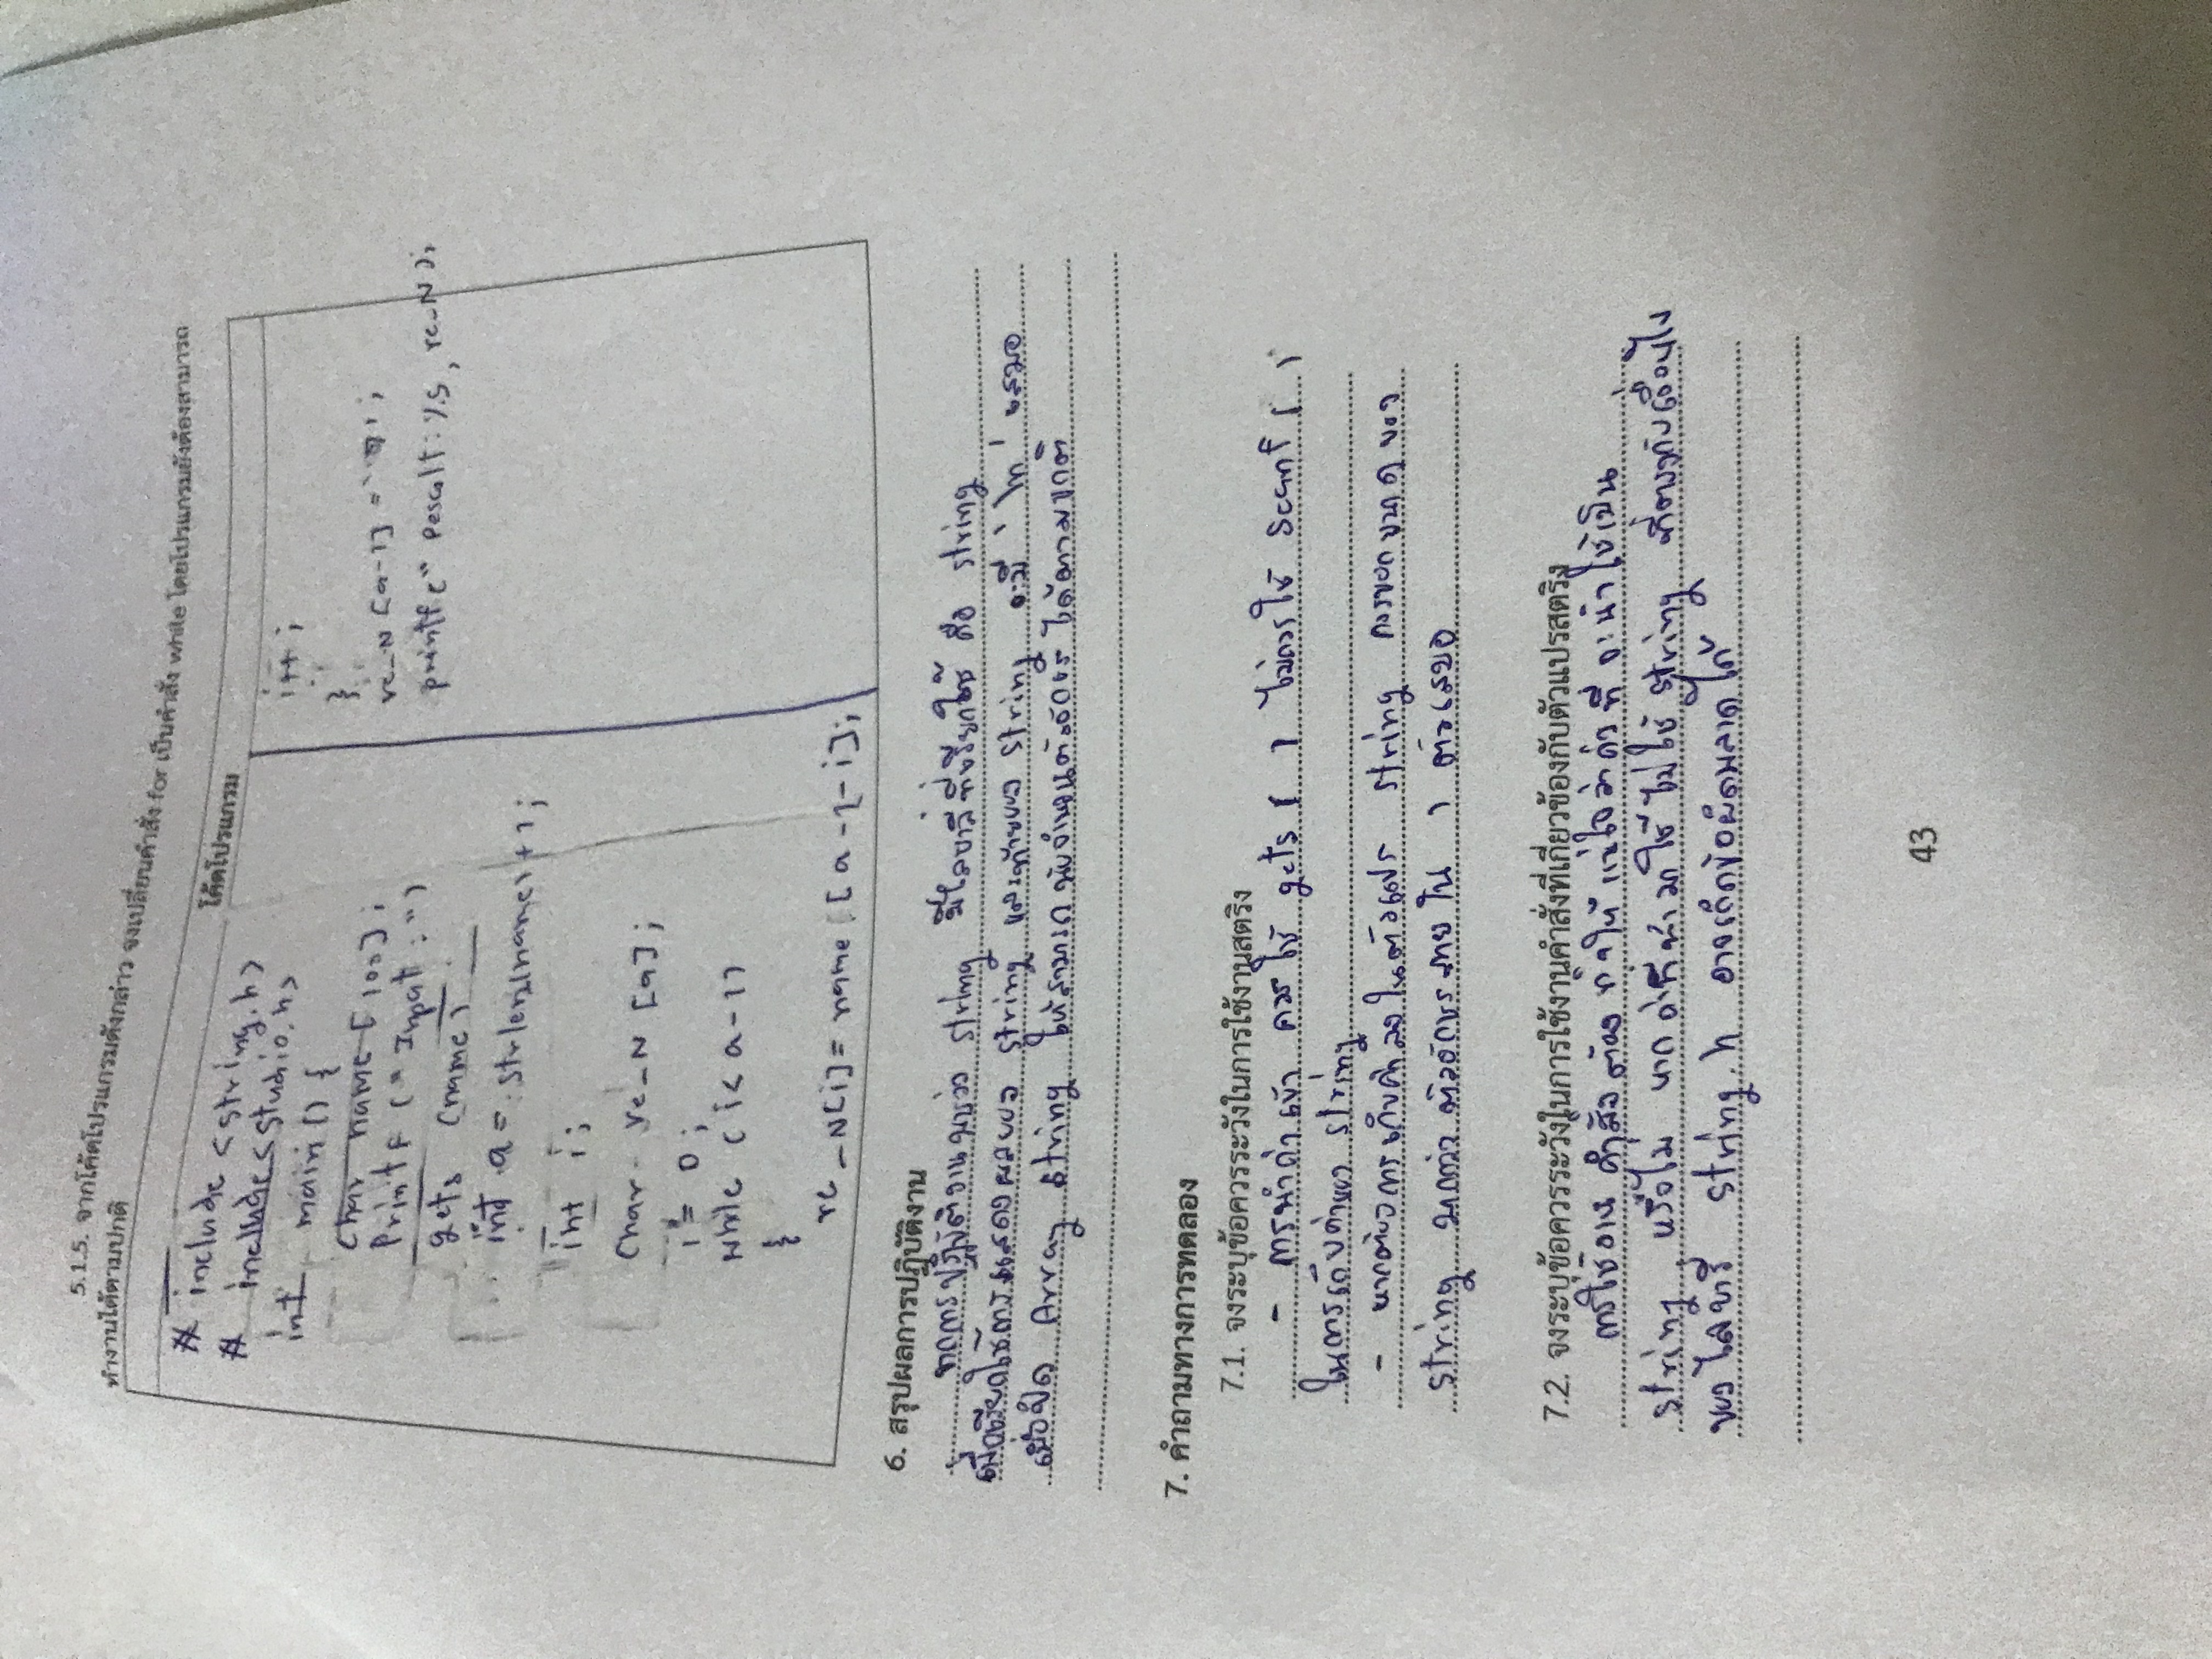 5.1.5. จากโค้ดโปรแกรมดังกล่าว จงเปลี่ยนคำสั่ง for เป็นคำสั่ง while โดยโปรแกรมยังต้องสามารถ
ทำงานได้ตามปกติ
โค้ดโปรแกรม
# include <string.h>
# include <studio.h>
int main () {
char name [100];
Printf ("Input : ")
gets (name)
int a = strlen(name) + 1;
int i;
char re_N [a];
i = 0;
while (i< a-1)
{
re_N[i] = name [a-2-i];
i++;
}
re_N [a-1] =
printf (" Pesolt: %s, re_N );
6. สรุปผลการปฏิบัติงาน
จากการปฏิบัติงานพบว่า string มีไลบารี่ที่เรียกใช้ คือ string
เพื่อเรียกใช้การแสดงผลของ string และท้ายของ string จะมี เสมอ
เพื่อปิด Array string ให้สามารถนับจำนวนตัวอักษรได้ตามปกติ
7. คำถามทางการทดลอง
7.1. จงระบุข้อควรระวังในการใช้งานสตริง
- การนำค่าเข้า ควรใช้ gets ( ) ไม่ควรใช้ Scanf ( )
ในการเก็บค่าของ string
- หากต้องการเก็บค่าลงในตัวแปร string ควรบอกขนาดของ
string มากกว่าตัวอักษรภายใน 1 ตัวเสมอ
7.2. จงระบุข้อควรระวังในการใช้งานคำสั่งที่เกี่ยวข้องกับตัวแปรสตริง
การใช้งาน คำสั่ง ต้อง ทำให้แน่ใจว่าค่าที่จะนำใช้เป็น
string หรือไม่ หากค่าที่นำมาใช้ไม่ใช่ string ที่ตรงกับเงื่อนไข
ของไลบารี่ string.h อาจเกิดข้อผิดพลาดได้
43